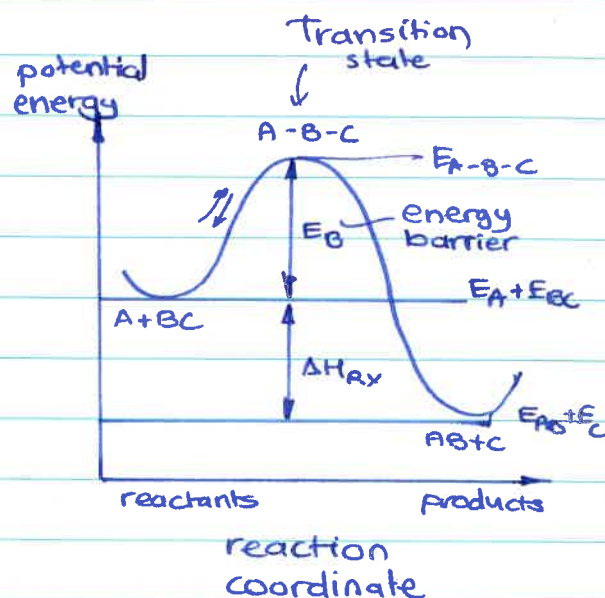 Transition
state
potential
energy
A-B-C
E_A-B-C
E_B
energy
barrier
E_A + E_BC
A+BC
ΔH_RX
E_AB + E_C
AB+C
reactants
products
reaction
coordinate